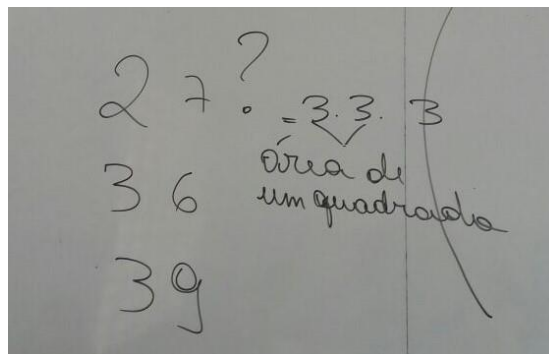 27? = 3. 3. 3
área de
um quadrado
36
39